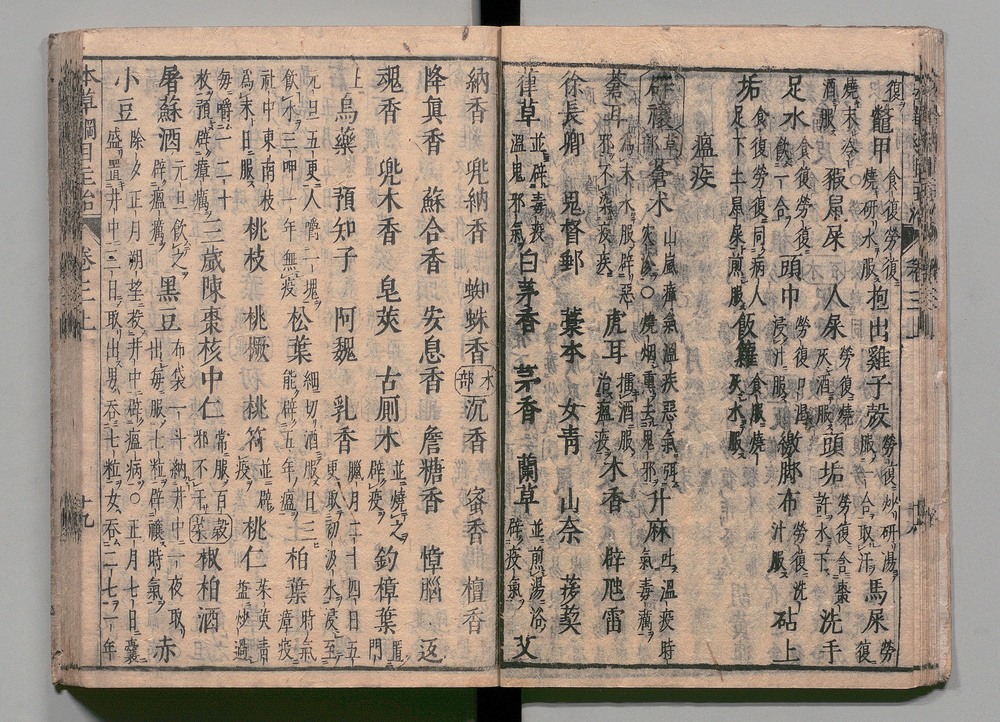 復 鼈甲 食復勞復燒研水服 抱出雞子殼 勞復炒研湯服一合取汗 馬屎 勞復
燒末冷酒服 豭鼠屎 人屎 勞復燒灰酒服 頭垢 勞復含棗許水下 洗手
足水 食復勞復飲一合 頭巾 勞復口渴浸汁服 繳脚布 勞復洗汁服 砧上
垢 食復勞復同病人足下土鼠屎煎服 飯籮 食復燒灰水服
瘟疫
辟禳 草部 蒼朮 山嵐瘴氣溫疾惡氣弭災沴○燒烟熏去鬼邪 升麻 吐溫疫時氣毒癘
蒼耳 為末水服辟惡邪不染疫疾 虎耳 擂酒服治瘟疫 木香 辟虺雷
徐長卿 鬼督郵 藁本 女青 山柰 菝葜
葎草 並辟毒疫溫鬼邪氣 白茅香 茅香 蘭草 並煎湯浴辟疫氣 艾
納香 兜納香 蜘蛛香 木部 沉香 蜜香 檀香
降眞香 蘇合香 安息香 詹糖香 樟腦 返
魂香 兜木香 皂莢 古厠木 並燒之辟疫 釣樟葉 置門
上 烏藥 預知子 阿魏 乳香 臘月二十四日五更取初汲水浸至
元旦五更人嚼一塊飲水三呷一年無疫 松葉 細切酒服日三能辟五年瘟 柏葉 時氣瘴疫
社中東南枝為末日服 桃枝 桃橛 桃符 並辟疫 桃仁 茱萸青鹽炒過
每嚼一二十枚預辟瘴癘 三歲陳棗核中仁 常服百邪不干 穀菜 椒柏酒
屠蘇酒 元旦飲之辟瘟癘 黑豆 布袋一斗納井中一夜取出每服七粒辟禳時氣 赤
小豆 除夕正月朔望投井中辟瘟病○正月七日囊盛置井中三日取出男吞七粒女吞二七一年
本草綱目主治 卷三上 十九